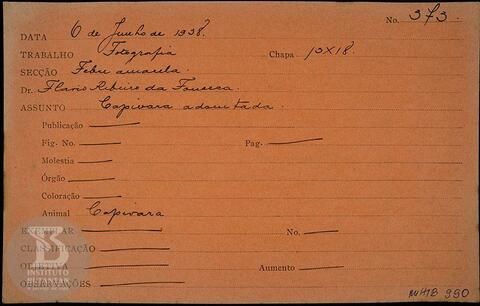 No. 373.
DATA 6 de Junho de 1938.
TRABALHO Fotografia Chapa 13X18.
SECÇÃO Febre amarela.
Dr. Flavio Ribeiro da Fonseca.
ASSUNTO Capivara adountada.
Publicação
Fig. No. Pag.
Molestia
Órgão
Coloração
Animal Capivara
EXEMPLAR No.
CLASSIFICAÇÃO
OBJETIVA Aumento
OBSERVAÇÕES
INSTITUTO
BUTANTAN
990